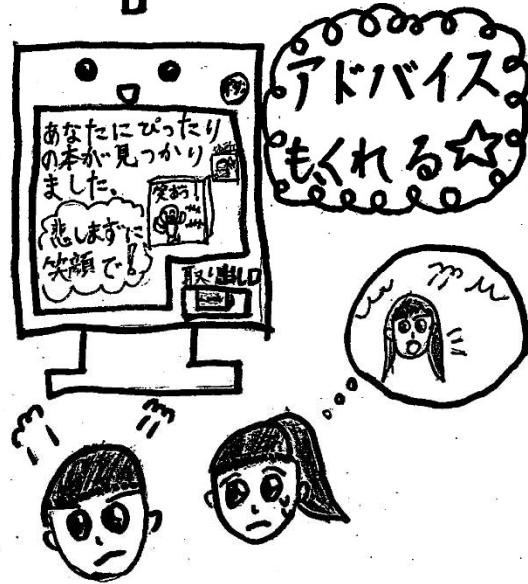 アドバイス
もくれる☆
あなたにぴったり
の本が見つかり
ました。
笑おう!
悲しまずに
笑顔で!
取り出し口